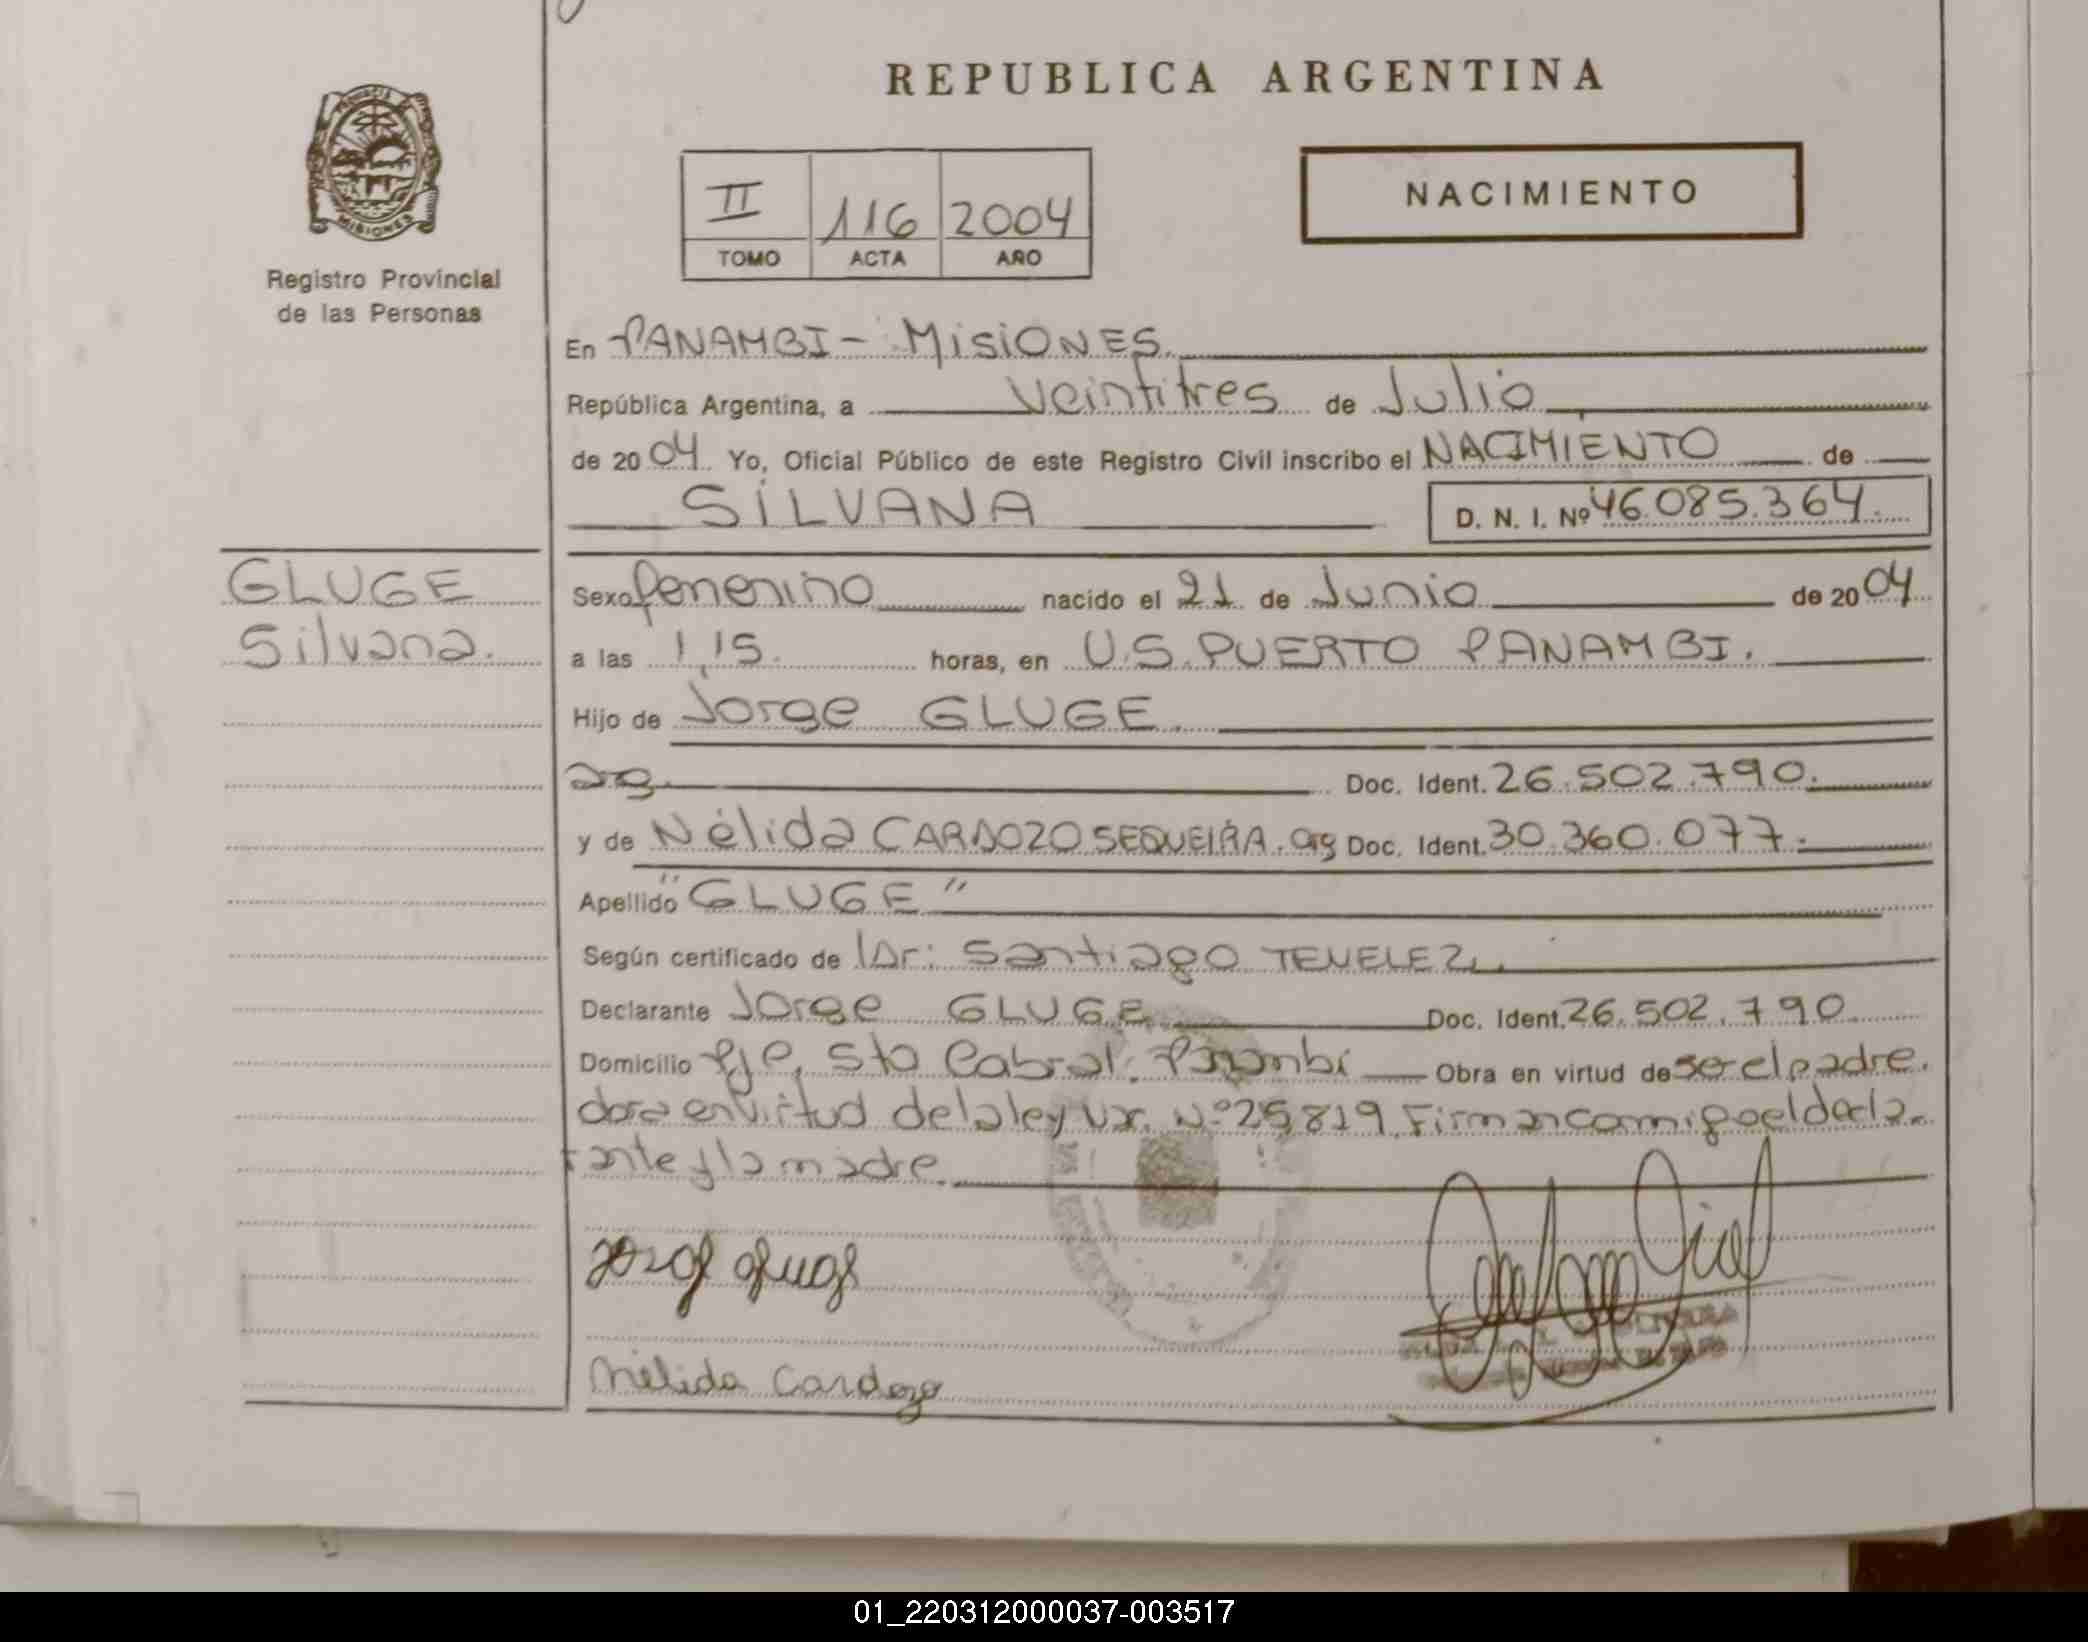 REPUBLICA ARGENTINA
NACIMIENTO
II 116 2004
TOMO ACTA AÑO
PROVINCIA
MISIONES
Registro Provincial
de las Personas
En PANAMBI - MISIONES.
República Argentina, a Veintitres de Julio
de 2004 Yo, Oficial Público de este Registro Civil inscribo el NACIMIENTO de
SILVANA D. N. I. Nº 46.085.364.
GLUGE
Silvana.
Sexo femenino nacido el 21 de Junio de 2004
a las 1,15. horas, en U.S. PUERTO PANAMBI.
Hijo de Jorge GLUGE.
arg. Doc. Ident. 26.502.790.
y de Nélida CARDOZO SEQUEIRA. arg Doc. Ident. 30.360.077.
Apellido "GLUGE"
Según certificado de Dr: Santiago TENELEZ.
Declarante Jorge GLUGE Doc. Ident. 26.502.790
Domicilio Pje. Sto Cabral. Panambi Obra en virtud de ser el padre.
en virtud de la ley Nº 25,819. Firman conmigo el decla-
rante y la madre.
Jorge Gluge
Nélida Cardozo
01_220312000037-003517